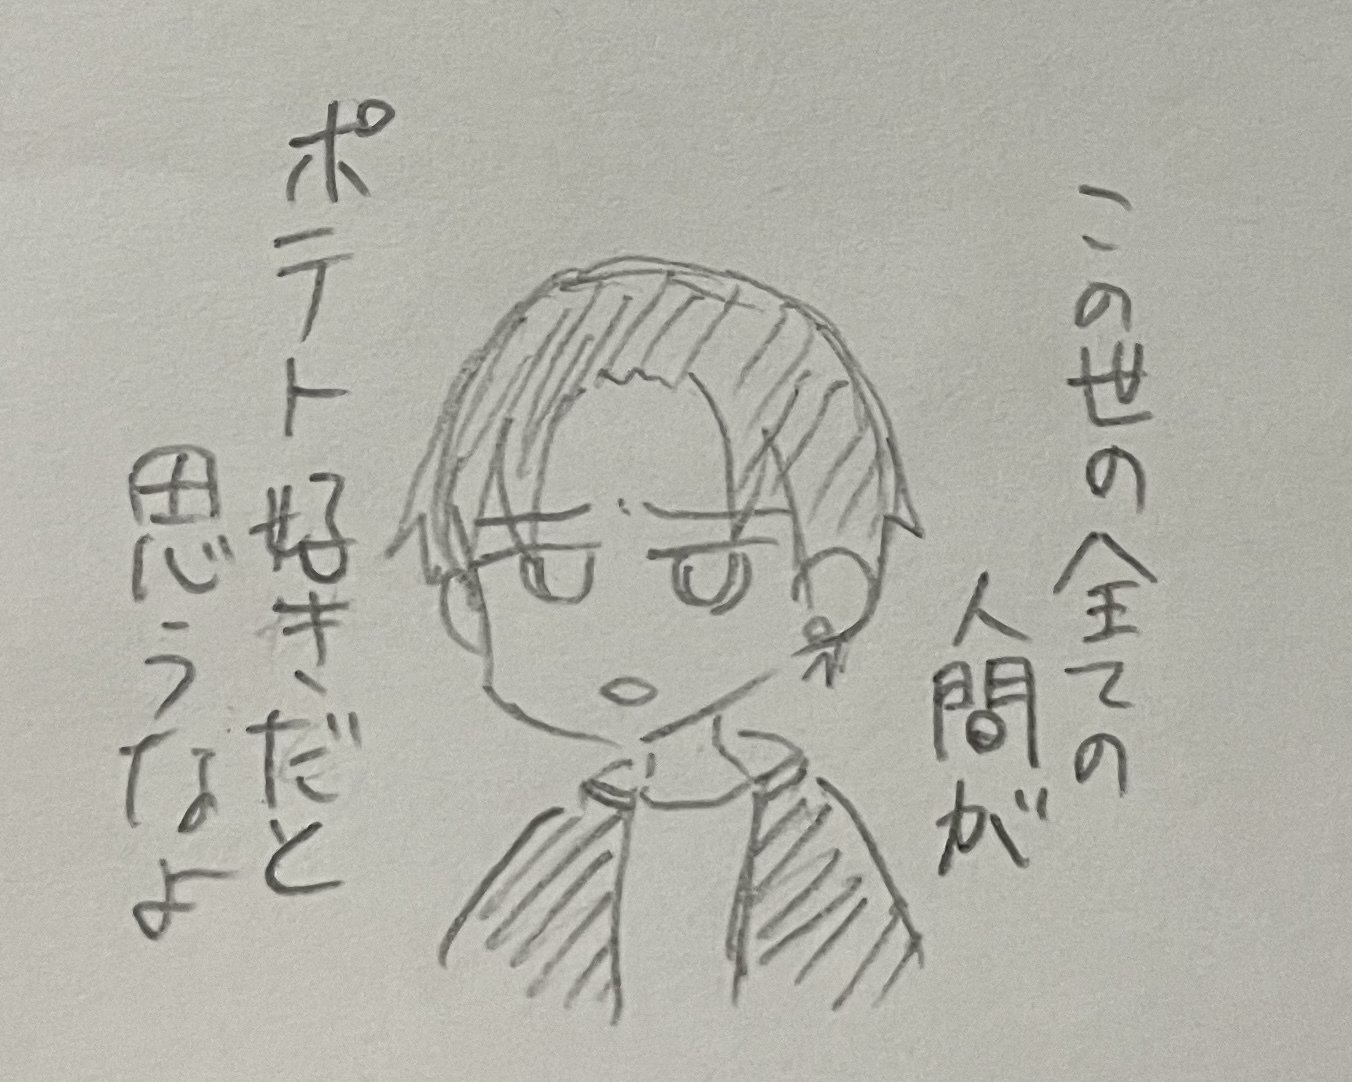 この世の全ての
人間が
ポテト好きだと
思うなよ